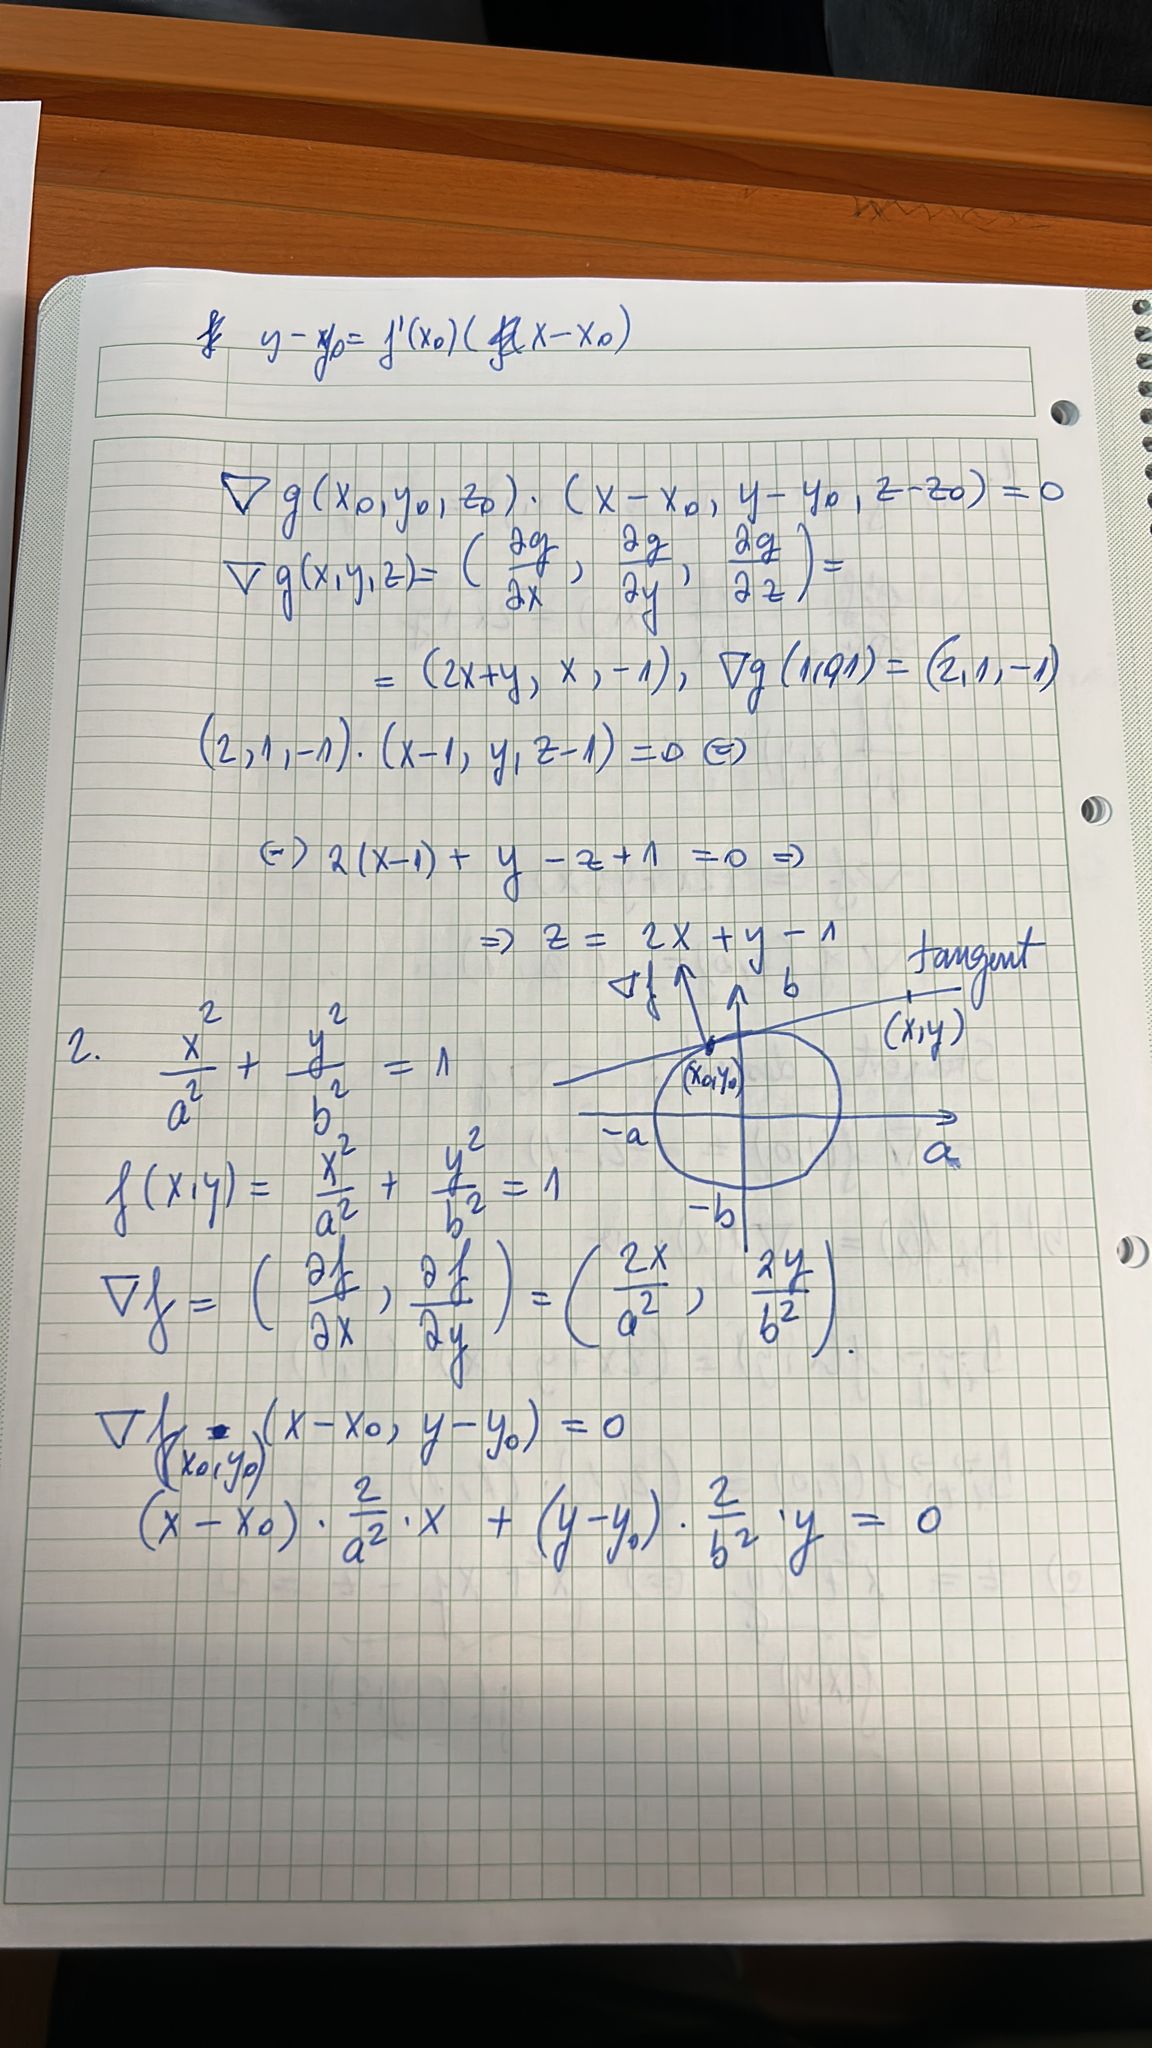 y - y₀ = f'(x₀)(x - x₀)
∇g(x₀, y₀, z₀) · (x - x₀, y - y₀, z - z₀) = 0
∇g(x,y,z) = (∂g/∂x, ∂g/∂y, ∂g/∂z) =
= (2x+y, x, -1), ∇g(1,0,1) = (2,1,-1)
(2,1,-1) · (x-1, y, z-1) = 0 ⇔
⇔ 2(x-1) + y - z + 1 = 0 ⇒
⇒ z = 2x + y - 1
∇f b tangent
(x,y)
(x₀,y₀)
-a a
-b
2. x²/a² + y²/b² = 1
f(x,y) = x²/a² + y²/b² = 1
∇f = (∂f/∂x, ∂f/∂y) = (2x/a², 2y/b²).
∇f(x₀,y₀) · (x - x₀, y - y₀) = 0
(x - x₀) · 2/a² · x + (y - y₀) · 2/b² · y = 0